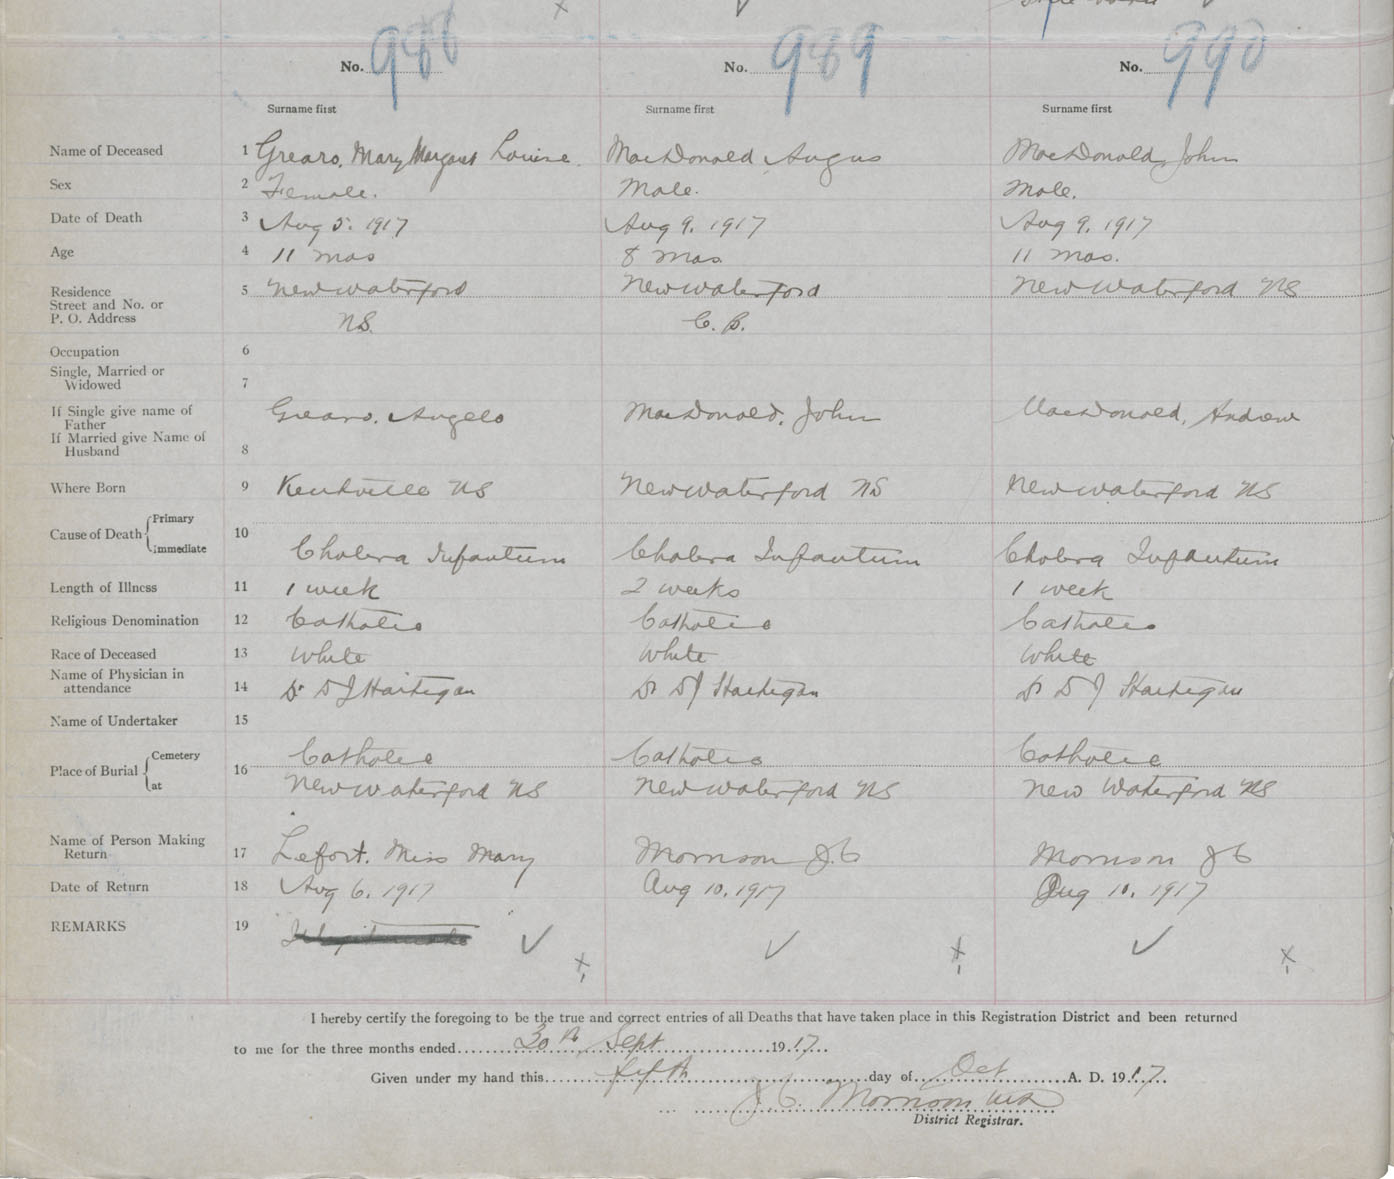 No. 988 No. 989 No. 990
Surname first Surname first Surname first
Name of Deceased 1 Grearo, Mary Margaret Louise MacDonald, Angus MacDonald, John
Sex 2 Female. Male. Male.
Date of Death 3 Aug 5. 1917 Aug 9. 1917 Aug 9. 1917
Age 4 11 mos 8 mos 11 mos.
Residence
Street and No. or
P. O. Address
5 New Waterford New Waterford New Waterford NS
NS. C. B.
Occupation 6
Single, Married or
Widowed 7
If Single give name of
Father
If Married give Name of
Husband 8
Grearo, Angelo MacDonald, John MacDonald, Andrew
Where Born 9 Kentville NS New Waterford NS New Waterford NS
Cause of Death Primary
Immediate
10 Cholera Infantum Cholera Infantum Cholera Infantum
Length of Illness 11 1 week 2 weeks 1 week
Religious Denomination 12 Catholic Catholic Catholic
Race of Deceased 13 White White White
Name of Physician in
attendance 14 Dr D J Hartigan Dr D J Hartigan Dr D J Hartigan
Name of Undertaker 15
Place of Burial Cemetery
at
16 Catholic Catholic Catholic
New Waterford NS New Waterford NS New Waterford NS
Name of Person Making
Return 17 Lefort, Miss Mary Morrison J.C Morrison J C
Date of Return 18 Aug 6. 1917 Aug 10. 1917 Aug 10. 1917
REMARKS 19
I hereby certify the foregoing to be the true and correct entries of all Deaths that have taken place in this Registration District and been returned
to me for the three months ended 30th Sept 1917
Given under my hand this fifth day of Oct A. D. 1917
J. C. Morrison MD
District Registrar.